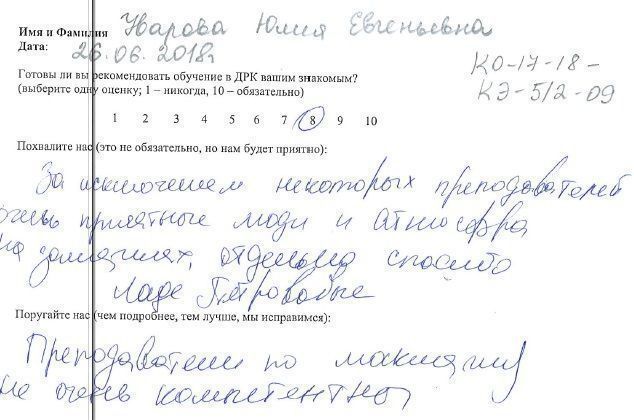 Имя и Фамилия Уварова Юлия Евгеньевна
Дата: 26.06.2018г
Готовы ли вы рекомендовать обучение в ДРК вашим знакомым?
(выберите одну оценку; 1 – никогда, 10 – обязательно)
КО-17-18-
КЭ-5/2-09
1 2 3 4 5 6 7 8 9 10
Похвалите нас (это не обязательно, но нам будет приятно):
За исключением некоторых преподавателей
очень приятные люди и атмосфера
на занятиях, отдельно спасибо
Ладе
Поругайте нас (чем подробнее, тем лучше, мы исправимся):
Преподаватели по макияжу
не очень компетентны